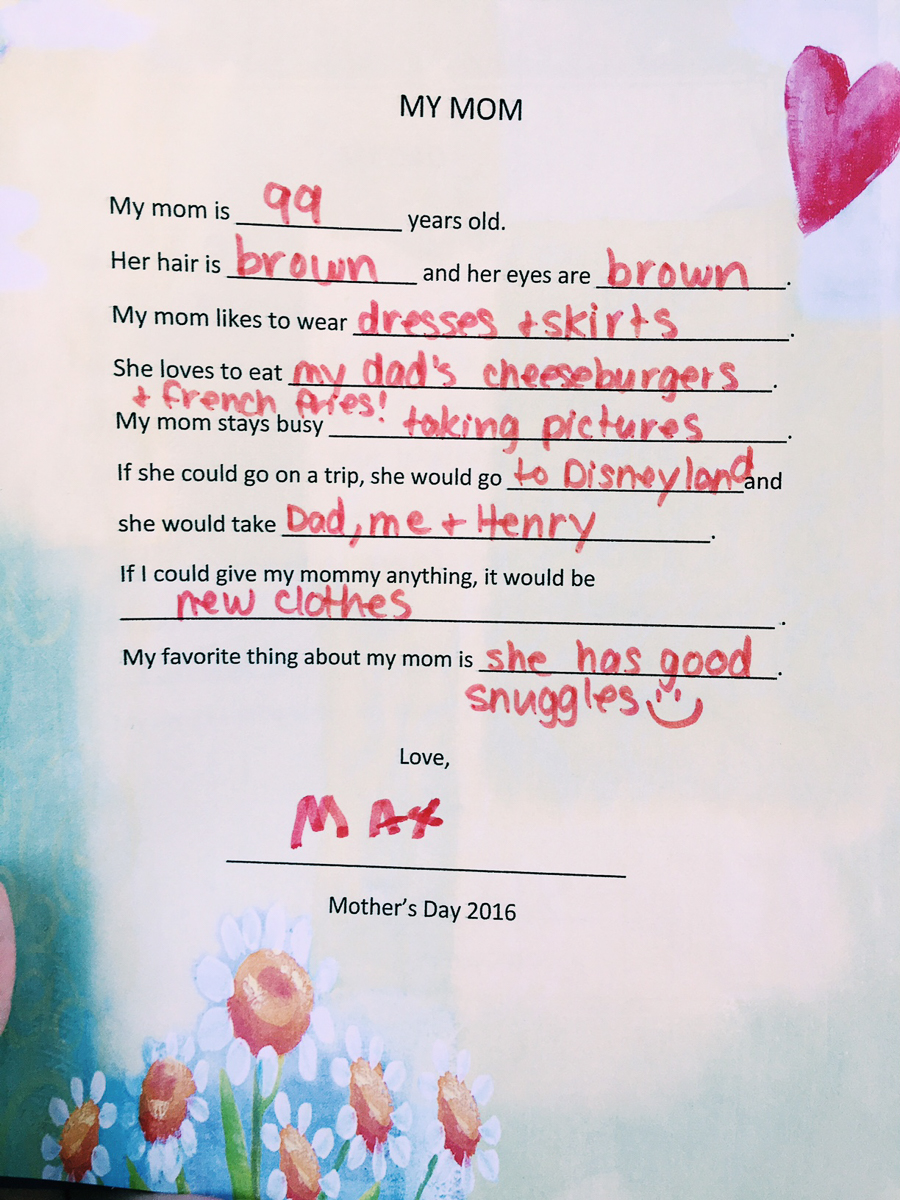 MY MOM
My mom is 99 years old.
Her hair is brown and her eyes are brown.
My mom likes to wear dresses + skirts.
She loves to eat my dad's cheeseburgers.
+ french fries!
My mom stays busy taking pictures.
If she could go on a trip, she would go to Disneyland and
she would take Dad, me + Henry.
If I could give my mommy anything, it would be
new clothes.
My favorite thing about my mom is she has good.
snuggles
Love,
MAX
Mother's Day 2016